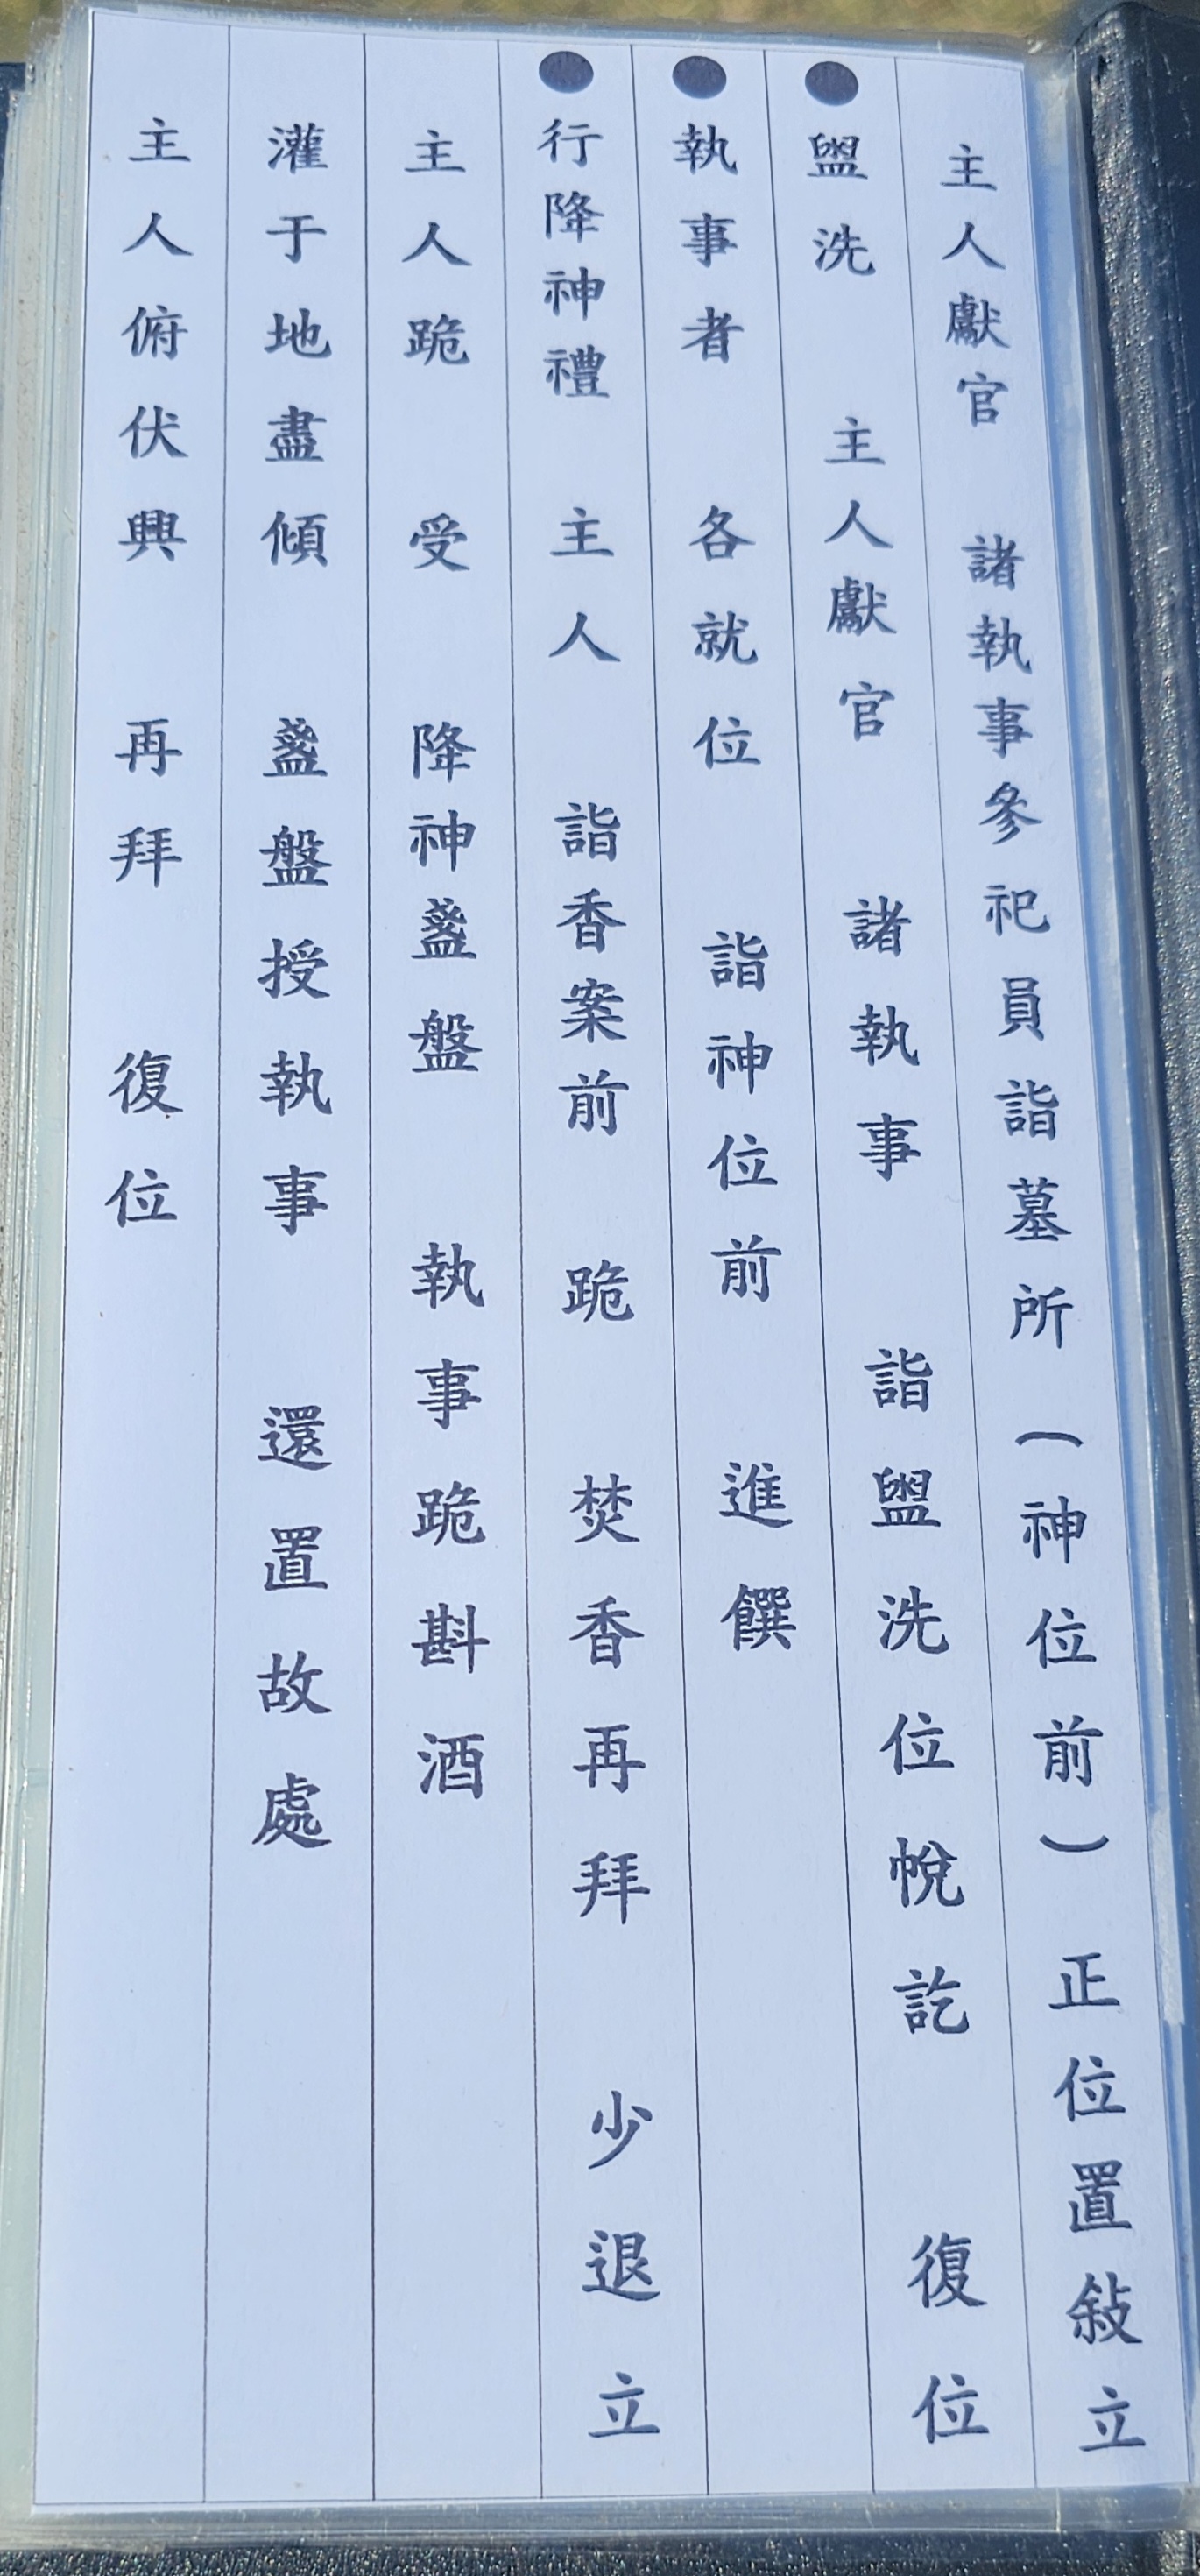 主人獻官 諸執事參祀員詣墓所(神位前)正位置敍立
●盥洗 主人獻官 諸執事 詣盥洗位帨訖 復位
●執事者 各就位 詣神位前 進饌
●行降神禮 主人 詣香案前 跪 焚香再拜 少退立
主人跪 受 降神盞盤 執事跪斟酒
灌于地盡傾 盞盤授執事 還置故處
主人俯伏興 再拜 復位